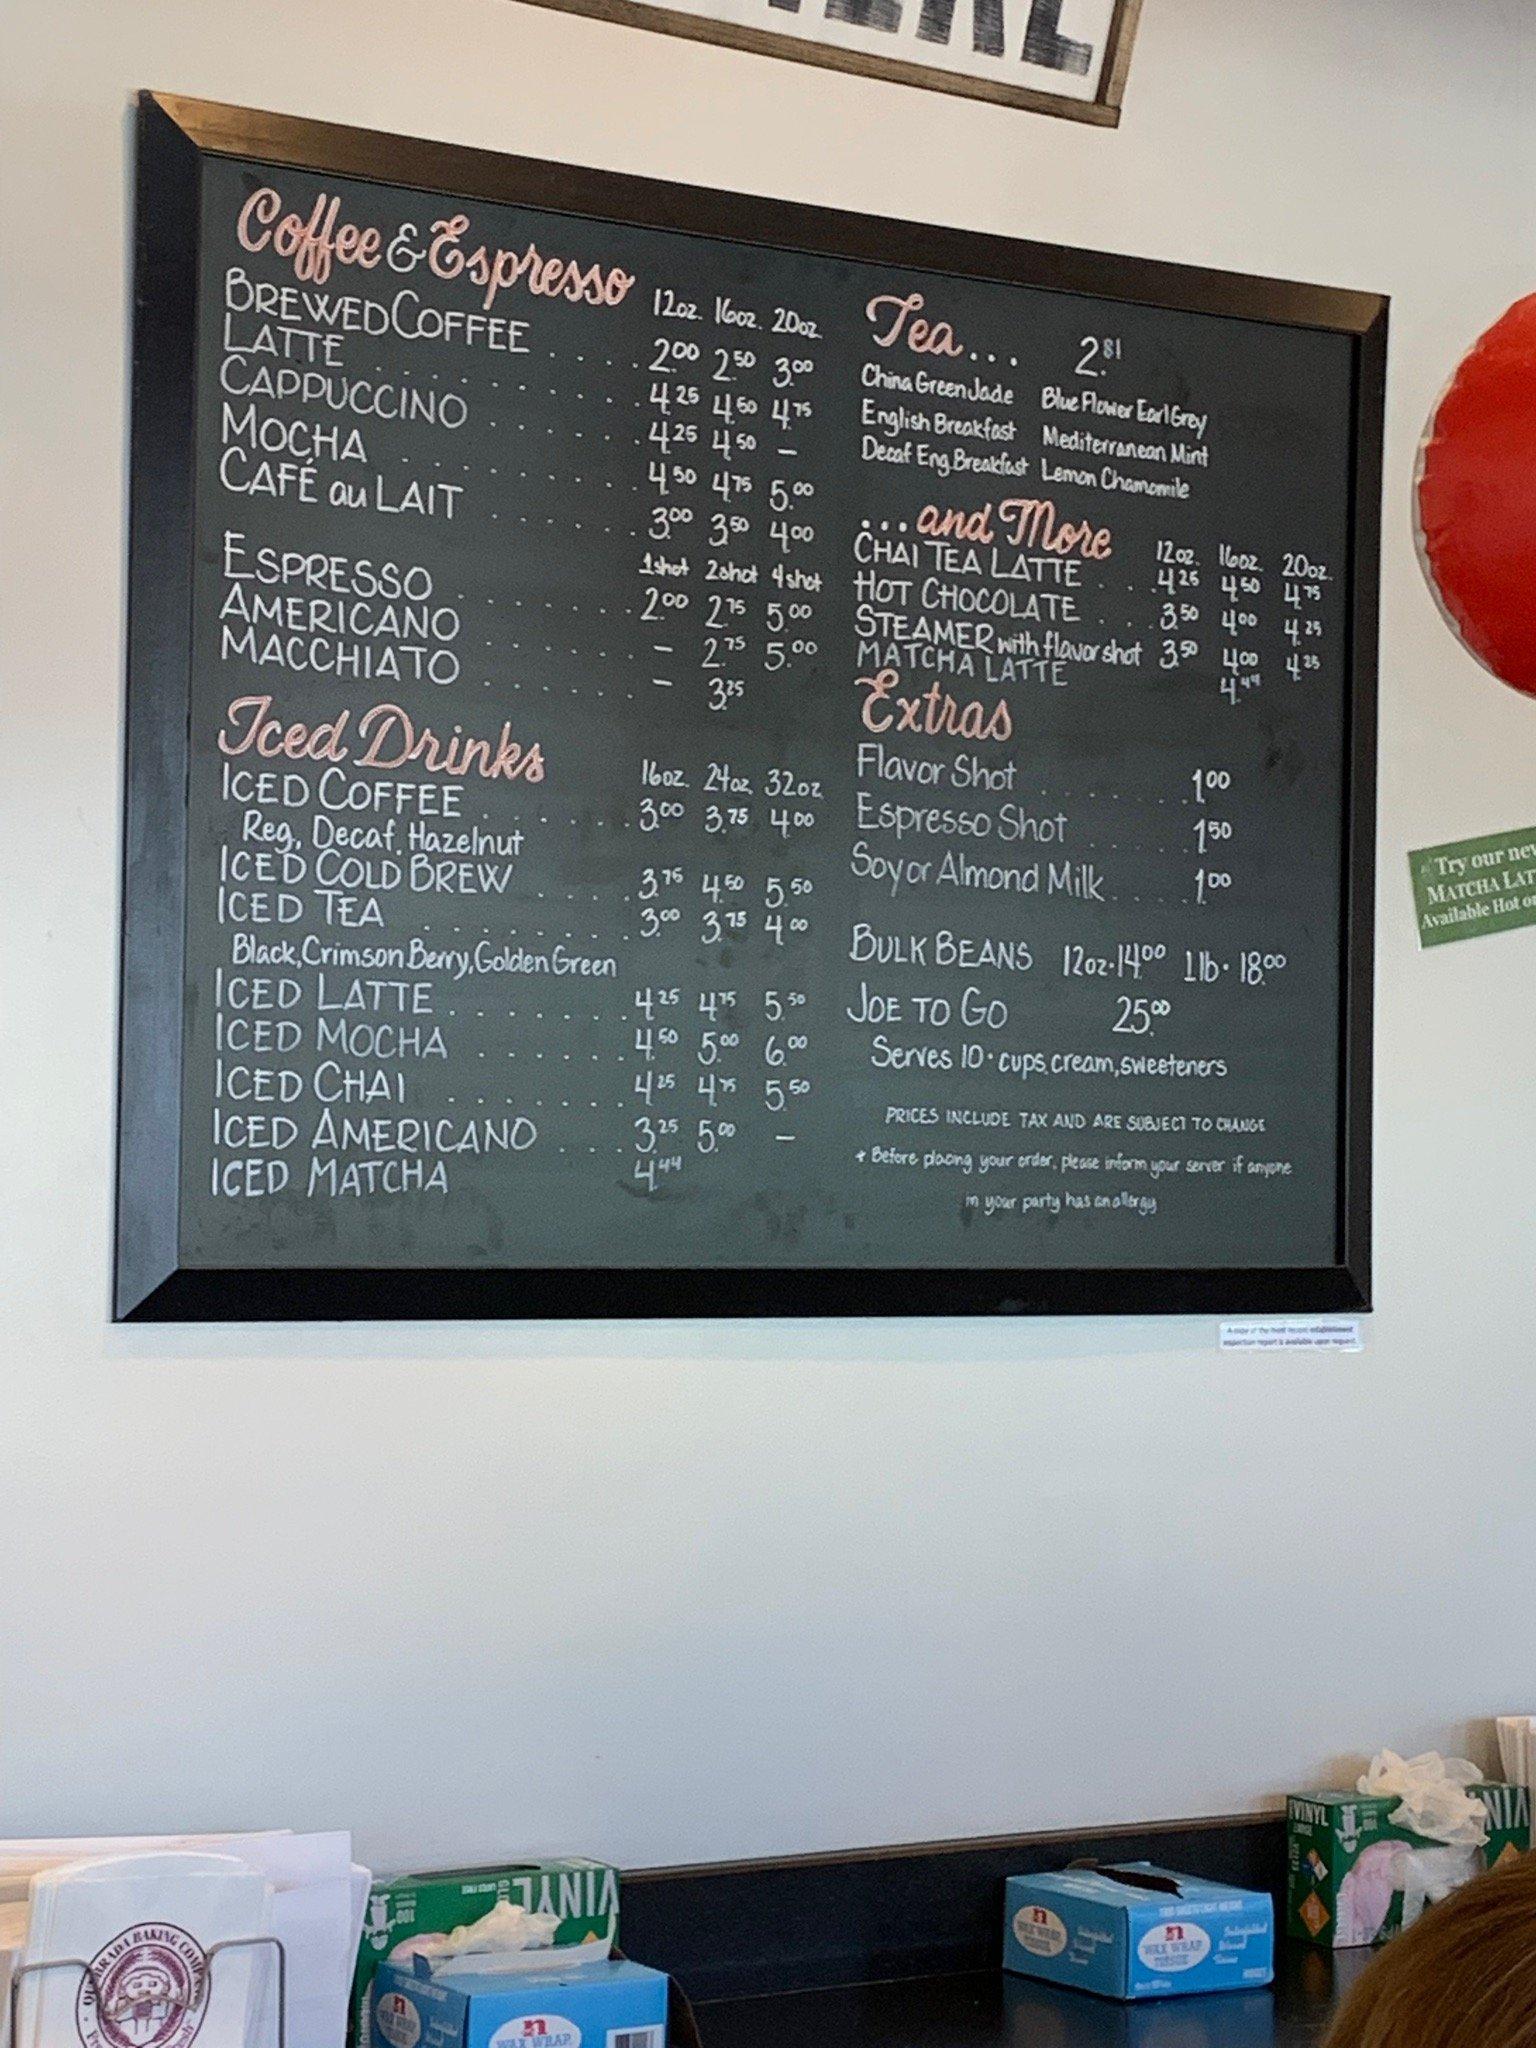 Coffee & Espresso 12oz. 16oz. 20oz.
BREWED COFFEE .... 2.00 2.50 3.00
LATTE ......... 4.25 4.50 4.75
CAPPUCCINO ...... 4.25 4.50 –
MOCHA ......... 4.50 4.75 5.00
CAFÉ au LAIT ...... 3.00 3.50 4.00
1shot 2shot 4shot
ESPRESSO ....... 2.00 2.75 5.00
AMERICANO ...... – 2.75 5.00
MACCHIATO ...... – 3.25
Iced Drinks 16oz. 24oz. 32oz
ICED COFFEE ...... 3.00 3.75 4.00
Reg, Decaf, Hazelnut
ICED COLD BREW ..... 3.75 4.50 5.50
ICED TEA ......... 3.00 3.75 4.00
Black, Crimson Berry, Golden Green
ICED LATTE ....... 4.25 4.75 5.50
ICED MOCHA ...... 4.50 5.00 6.00
ICED CHAI ....... 4.25 4.75 5.50
ICED AMERICANO .... 3.25 5.00 –
ICED MATCHA 4.44
Tea... 2.81
China Green Jade Blue Flower Earl Grey
English Breakfast Mediterranean Mint
Decaf Eng. Breakfast Lemon Chamomile
...and More 12oz. 16oz. 20oz.
CHAI TEA LATTE ... 4.25 4.50 4.75
HOT CHOCOLATE ... 3.50 4.00 4.25
STEAMER with flavor shot 3.50 4.00 4.25
MATCHA LATTE 4.44
Extras
Flavor Shot ....... 1.00
Espresso Shot ..... 1.50
Soy or Almond Milk .... 1.00
BULK BEANS 12oz · 14.00 1lb · 18.00
JOE TO GO 25.00
Serves 10 · cups, cream, sweeteners
PRICES INCLUDE TAX AND ARE SUBJECT TO CHANGE
* Before placing your order, please inform your server if anyone
in your party has an allergy
Try our new
MATCHA LAT
Available Hot or
A copy of the most recent establishment
inspection report is available upon request.
VINYL
100
VINYL
WAX WRAP
TISSUE
VINYL
VINYL
BAKING COMP
WAX WRAP